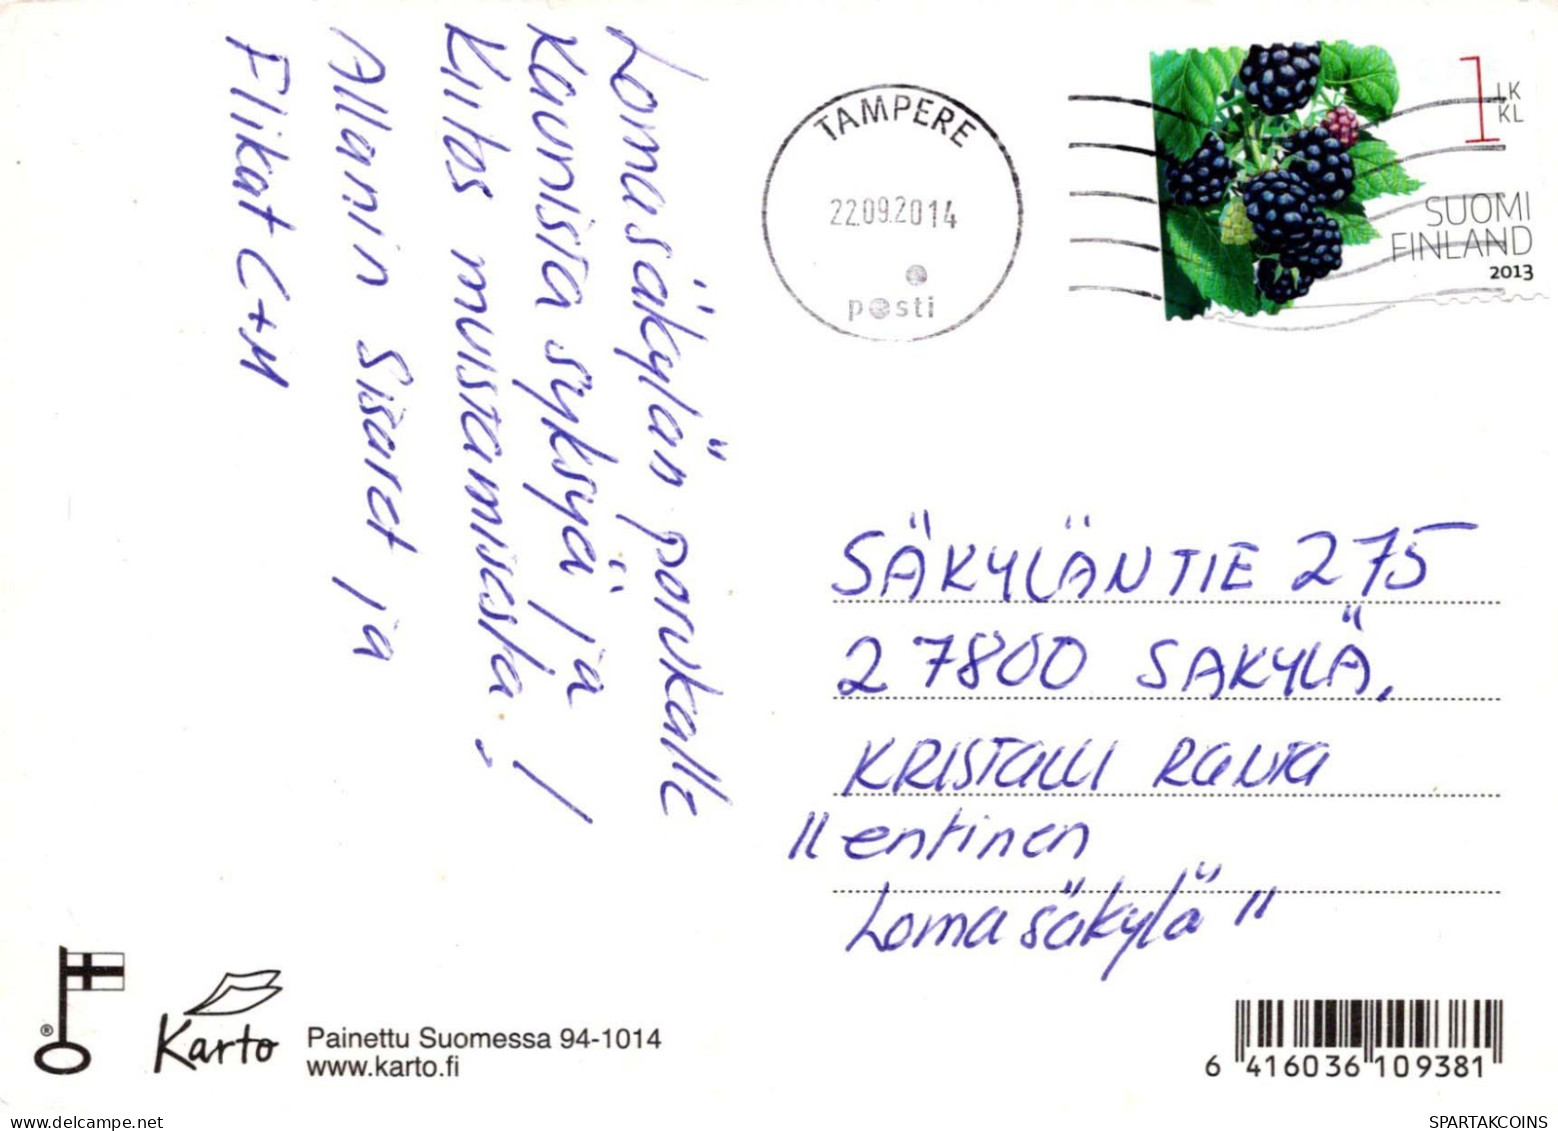 Lomasäkylän porukalle
Kaunista syksyä ja
Kiitos muistamisesta!
Allamin Sisaret ja
Flikat C+M
TAMPERE
22.09.2014
posti
1 LK
KL
SUOMI
FINLAND
2013
SÄKYLÄNTIE 275
27800 SÄKYLÄ.
KRISTALLI RANTA
"entinen
Lomasäkylä"
Karto
Painettu Suomessa 94-1014
www.karto.fi
6 416036 109381
SPARTAKCOINS